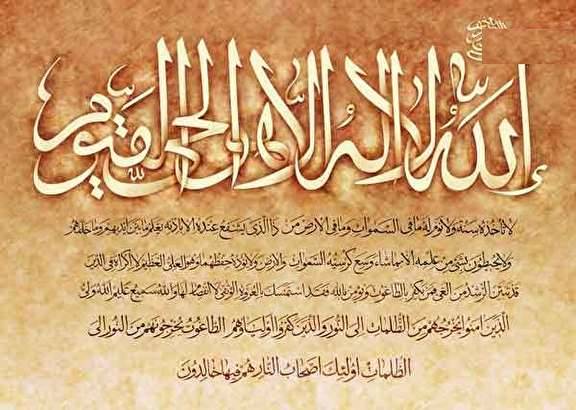 الله لا اله الا هو الحي القيوم
لا تاخذه سنة ولا نوم له ما فى السموات وما فى الارض من ذا الذى يشفع عنده الا باذنه يعلم ما بين ايديهم وما خلفهم
ولا يحيطون بشئ من علمه الا بما شاء وسع كرسيه السموات والارض ولا يؤده حفظهما وهو العلى العظيم لا اكراه فى الدين
قد تبين الرشد من الغى فمن يكفر بالطاغوت ويؤمن بالله فقد استمسك بالعروة الوثقى لا انفصام لها والله سميع عليم الله ولى
الذين امنوا يخرجهم من الظلمات الى النور والذين كفروا اولياؤهم الطاغوت يخرجونهم من النور الى
الظلمات اولئك اصحاب النار هم فيها خالدون